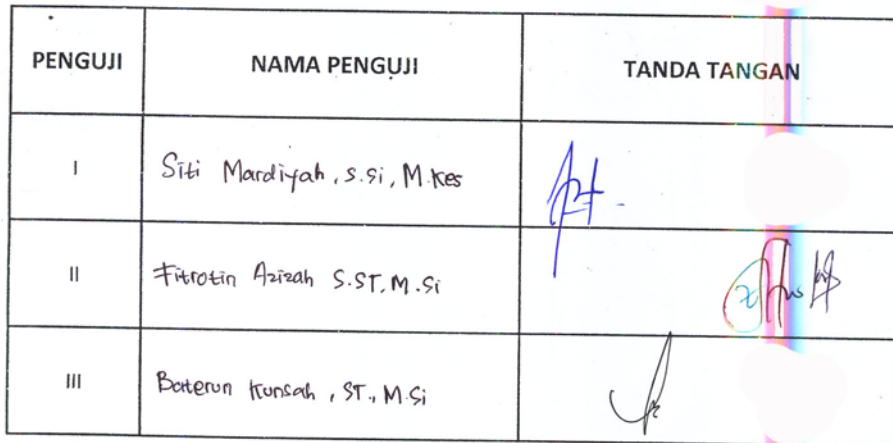 PENGUJI NAMA PENGUJI TANDA TANGAN
I Siti Mardiyah, S.Si, M.Kes
II Fitrotin Azizah S.ST, M.Si
III Baterun Kunsah, ST., M.Si